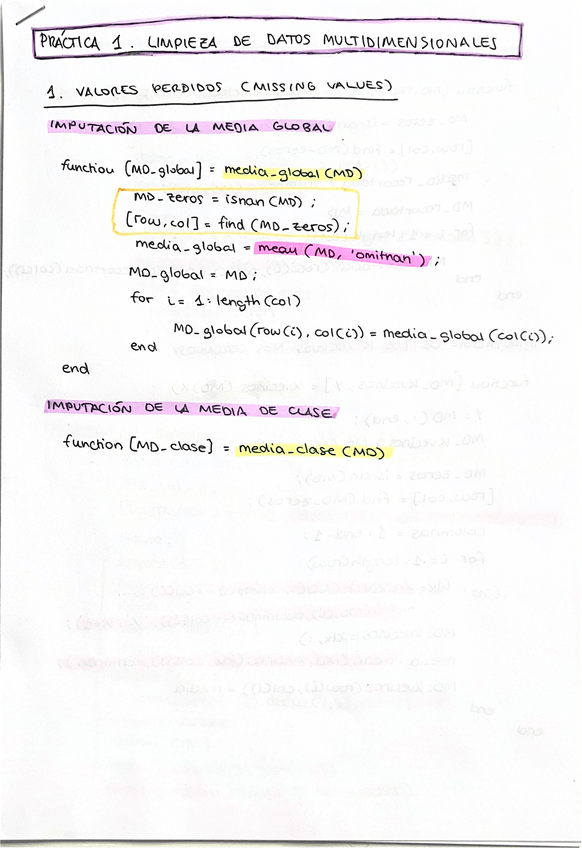 PRÁCTICA 1. LIMPIEZA DE DATOS MULTIDIMENSIONALES
1. VALORES PERDIDOS (MISSING VALUES)
IMPUTACIÓN DE LA MEDIA GLOBAL
function [MD_global] = media_global (MD)
MD_zeros = isnan (MD) ;
[row, col] = find (MD_zeros);
media_global = mean (MD, 'omitnan') ;
MD_global = MD;
for i = 1:length (col)
MD_global (row(i), col(i)) = media_global (col(i));
end
end
IMPUTACIÓN DE LA MEDIA DE CLASE
function [MD_clase] = media_clase (MD)